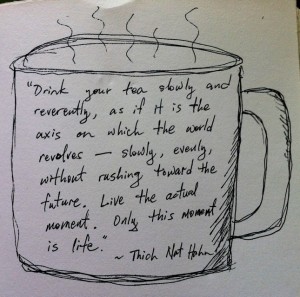 "Drink your tea slowly and
reverently, as if it is the
axis on which the world
revolves — slowly, evenly,
without rushing toward the
future. Live the actual
moment. Only this moment
is life."
~ Thich Nat Hahn